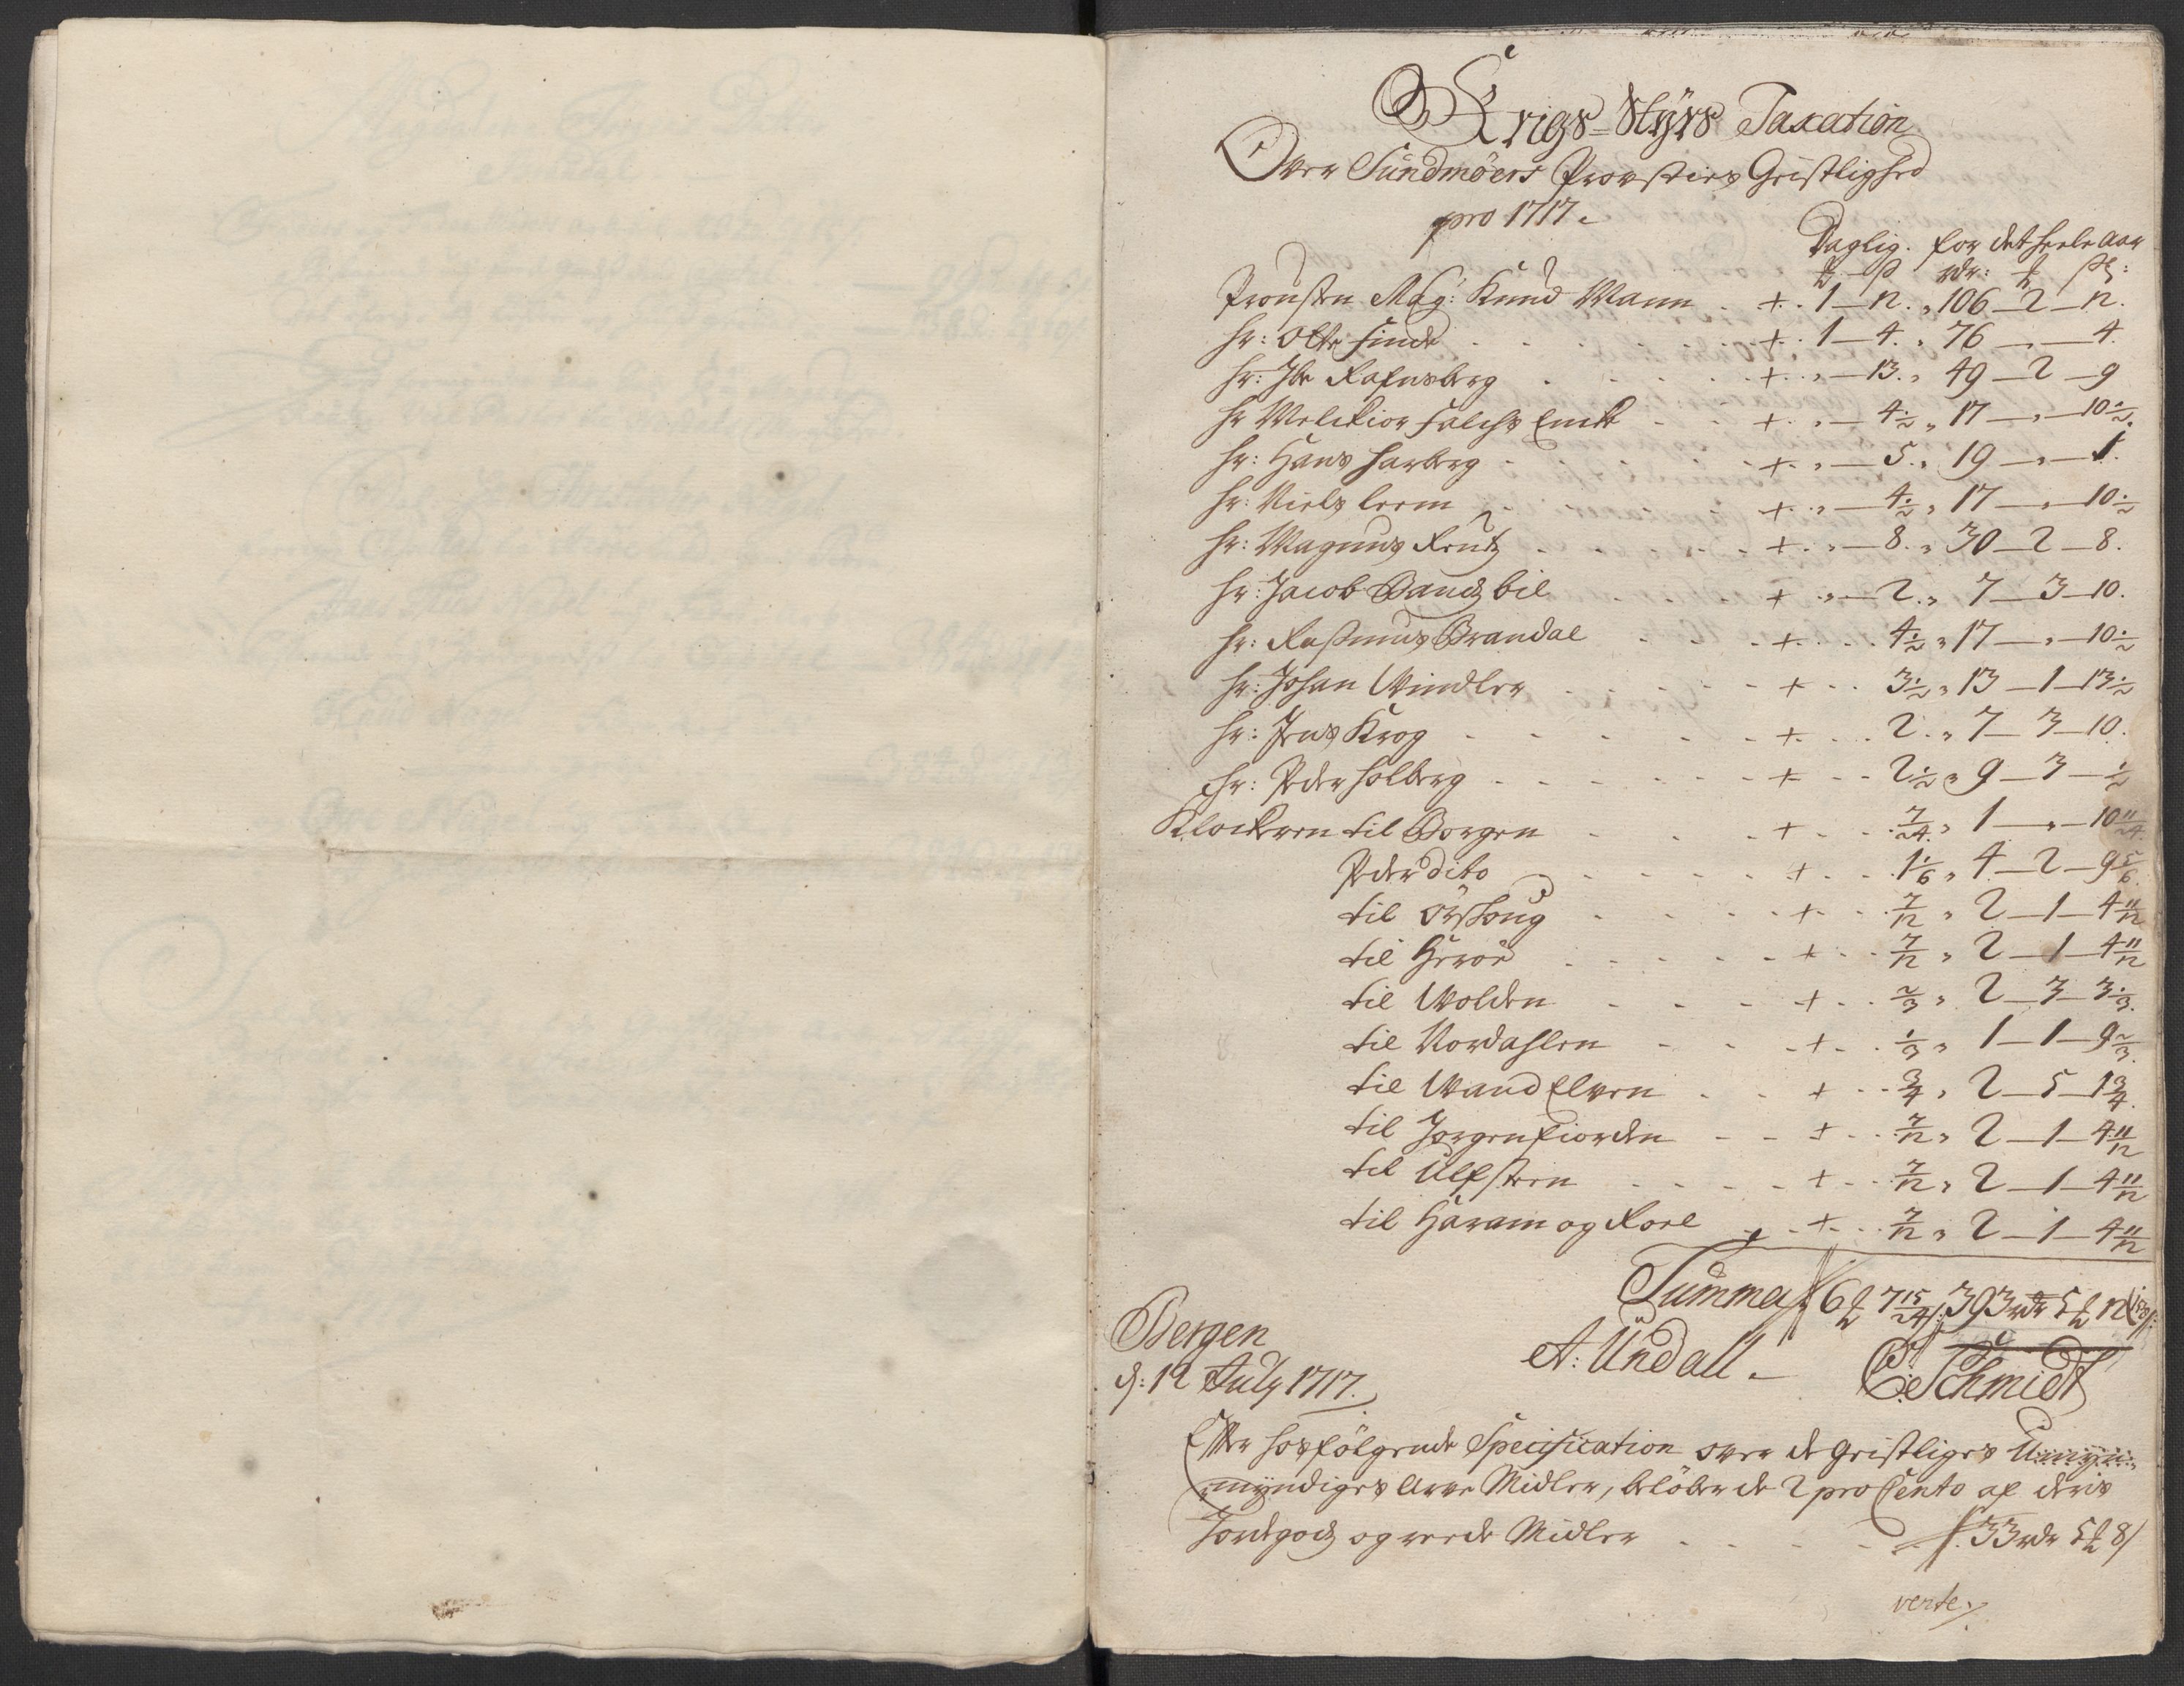 Krigs-Styrs Taxation
Over Sundmöers Provsties Geistlighed
pro 1717.
Daglig. for det heele Aar
rdr:
Prousten Mag: Knud Wann + 1–12. 106–2–12.
Hr: Olle Finde + 1–4. 76–„–4.
Hr: Ibr Rafnsberg + „–13. 49–2–9
Hr Melchior Falchs Encke + „–4½ 17–„–10½.
Hr: Hans Harberg + „–5. 19–„–1.
Hr: Niels Leem + „–4½ 17–„–10½
Hr: Magnus Reutz + „–8. 30–2–8.
Hr: Jacob Bandz bil + „–2. 7–3–10.
Hr: Rasmus Brandal + 4½ 17–„–10½
Hr: Johan Windler + 3½ 13–1–13½
Hr: Jens Krog + 2. 7–3–10.
Hr: Peder Holberg + 2½ 9–3–½
Klockeren til Borgen + 7/24. 1–„–10 11/24.
Peder dito + 1 1/6 4–2–9 5/6.
til Örschoug + 7/12 2–1–4 11/12
til Herröe + 7/12 2–1–4 11/12
til Wolden + 2/3 2–3–3 1/3.
til Nordahlen + 1/3 1–1–9 2/3.
til Wand Elven + 3/4 2–5–1 3/4.
til Jørgenfiorden + 7/12 2–1–4 11/12
til Ulfsteen + 7/12 2–1–4 11/12
til Haram og Roel + 7/12 2–1–4 11/12
Summa 6 7 15/24 393 rdr 5 12
Bergen
d: 12 July 1717.
A: Undall. C: Schmidt
Efter hosfölgende Specification over de Geistliges
myndiges Arve Midler, belöber de 2 pro Cento af deris
Jordegodz og reede Midler 33 rdr 5 8/
verte.